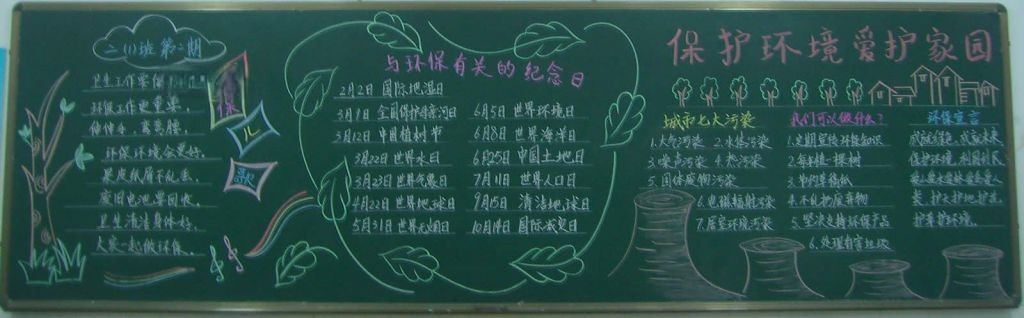 二(1)班 第二期
卫生工作要做
环保工作更重要。
伸伸手,弯弯腰。
环保环境会更好。
果皮纸屑不乱丢,
废旧电池要回收。
卫生清洁身体好,
大家一起做环保。
保
儿
歌
与环保有关的纪念日
2月2日 国际湿地日
3月9日 全国保护母亲河日
3月12日 中国植树节
3月22日 世界水日
3月23日 世界气象日
4月22日 世界地球日
5月31日 世界无烟日
6月5日 世界环境日
6月8日 世界海洋日
6月25日 中国土地日
7月11日 世界人口日
9月15日 清洁地球日
10月14日 国际减灾日
保护环境爱护家园
城市七大污染
1.大气污染 2.水体污染
3.噪声污染 4.热污染
5.固体废物污染
6.电磁辐射污染
7.居室环境污染
我们可以做什么?
1.定期宣传环保知识
2.每年植一棵树
3.节约草稿纸
4.不乱扔废弃物
5.坚决支持环保产品
6.处理有害垃圾
环保宣言
保护环境,利国利民
护有护环境。